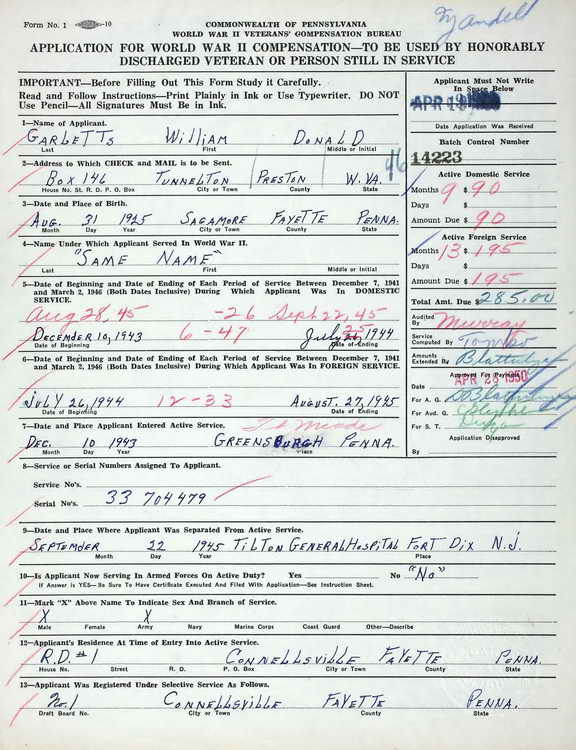 Form No. 1 -10
COMMONWEALTH OF PENNSYLVANIA
WORLD WAR II VETERANS' COMPENSATION BUREAU
APPLICATION FOR WORLD WAR II COMPENSATION—TO BE USED BY HONORABLY
DISCHARGED VETERAN OR PERSON STILL IN SERVICE
IMPORTANT—Before Filling Out This Form Study it Carefully.
Read and Follow Instructions—Print Plainly in Ink or Use Typewriter. DO NOT
Use Pencil—All Signatures Must Be in Ink.
Applicant Must Not Write
In Space Below
Date Application Was Received
Batch Control Number
14223
1—Name of Applicant.
GARLETTS WILLIAM DONALD
Last First Middle or Initial
2—Address to Which CHECK and MAIL is to be Sent.
46
BOX 146 TUNNELTON PRESTON W. VA.
House No. St. R. D. P. O. Box City or Town County State
3—Date and Place of Birth.
AUG. 31 1925 SAGAMORE FAYETTE PENNA.
Month Day Year City or Town County State
4—Name Under Which Applicant Served In World War II.
"SAME NAME"
Last First Middle or Initial
5—Date of Beginning and Date of Ending of Each Period of Service Between December 7, 1941
and March 2, 1946 (Both Dates Inclusive) During Which Applicant Was In DOMESTIC
SERVICE.
Aug 28, 45 -26 Sept 22, 45
DECEMBER 10, 1943 6-47 July 25 1944
Date of Beginning Date of Ending
6—Date of Beginning and Date of Ending of Each Period of Service Between December 7, 1941
and March 2, 1946 (Both Dates Inclusive) During Which Applicant Was In FOREIGN SERVICE.
JULY 26, 1944 12-33 AUGUST. 27, 1945
Date of Beginning Date of Ending
7—Date and Place Applicant Entered Active Service.
Meade
DEC. 10 1943 GREENSBURGH PENNA.
Month Day Year Place
Active Domestic Service
Months 9 $ 90
Days $
Amount Due $ 90
Active Foreign Service
Months 13 $ 195
Days $
Amount Due $ 195
Total Amt. Due $ 285.00
Audited By Murray
Service Computed By
Amounts Extended By
Approved For Payment
Date APR 26 1950
For A. G.
For Aud. G.
For S. T.
Application Disapproved
By
8—Service or Serial Numbers Assigned To Applicant.
Service No's.
Serial No's. 33 704479
9—Date and Place Where Applicant Was Separated From Active Service.
SEPTEMBER 22 1945 TILTON GENERAL HOSPITAL FORT DIX N.J.
Month Day Year Place
10—Is Applicant Now Serving In Armed Forces On Active Duty? Yes No "No"
If Answer is YES—Be Sure To Have Certificate Executed And Filed With Application—See Instruction Sheet.
11—Mark "X" Above Name To Indicate Sex And Branch of Service.
X X
Male Female Army Navy Marine Corps Coast Guard Other—Describe
12—Applicant's Residence At Time of Entry Into Active Service.
R.D. #1 CONNELLSVILLE FAYETTE PENNA.
House No. Street R. D. P. O. Box City or Town County State
13—Applicant Was Registered Under Selective Service As Follows.
No. 1 CONNELLSVILLE FAYETTE PENNA.
Draft Board No. City or Town County State